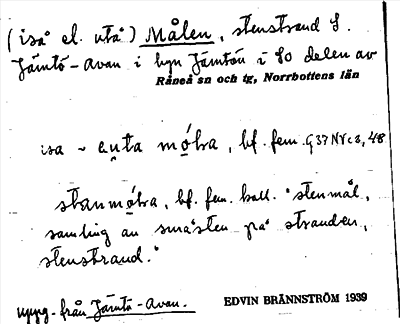 (iså el. utå) Målen, stenstrand S.
Jämtö-avan i byn Jämtön i SO delen av
Råneå sn och tg, Norrbottens län
isa ~ au̯ta mo̩lra, bf. fem. G37 Nr c 2, 48
stanmo̩lra, bf. fem. koll. "stenmål,
samling av småsten på stranden,
stenstrand."
uppg. från Jämtö-avan.
EDVIN BRÄNNSTRÖM 1939